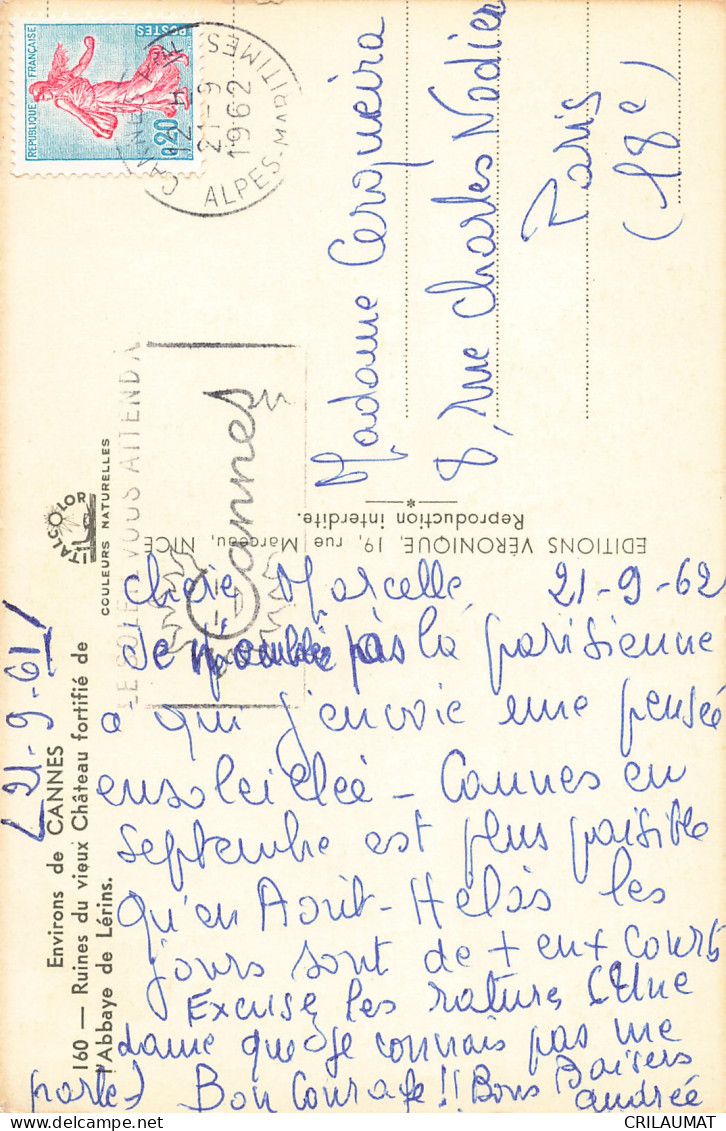 REPUBLIQUE FRANÇAISE
POSTES
0,20
CANNES
21-9
1962
ALPES-MARITIMES
LE VOUS ATTEND A
Cannes
Madame Cerqueira
8, rue Charles Nodier
Paris
(18e)
ITALCOLOR
COULEURS NATURELLES
EDITIONS VÉRONIQUE, 19, rue Marceau, NICE
Reproduction interdite.
Environs de CANNES
160 — Ruines du vieux Château fortifié de
l'Abbaye de Lérins.
21-9-61
Chère Marcelle 21-9-62
Je n'oublie pas la parisienne
à qui j'envoie une pensée
ensoleillée - Cannes en
Septembre est plus paisible
qu'en Août - Hélas les
jours sont de + en + courts
Excusez les ratures (Une
dame que je connais pas me
parle) Bon Courage !! Bons Baisers
Andrée
© CRILAUMAT